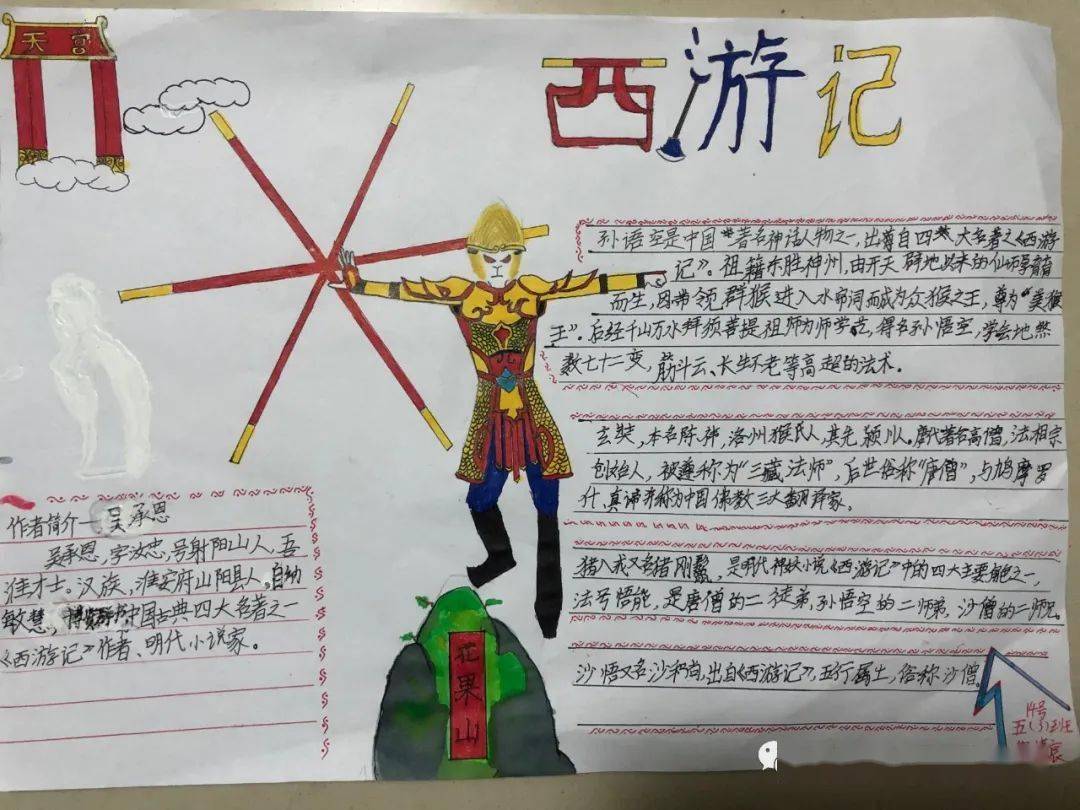 天宫
西游记
孙语空是中国著名神话人物之一,出自四大名著之《西游
记》。祖籍东胜神州,由开天辟地以来的仙
而生,因带领群猴进入水帘洞而成为众猴之王,尊为"美猴
王"。后经千山万水拜须菩提祖师为师学艺,得名孙悟空,学会地煞
数七十二变,筋斗云、长生不老等高超的法术。
玄奘,本名陈祎,洛州猴氏人,其先颍川人。唐代著名高僧,法相宗
创始人,被尊称为"三藏法师",后世俗称"唐僧",与鸠摩罗
什、真谛并称为中国佛教三大翻译家。
猪八戒又名猪刚鬣,是明代神妖小说《西游记》中的四大主要角色之一,
法号悟能,是唐僧的二徒弟,孙悟空的二师弟,沙僧的二师兄。
沙悟又名沙和尚,出自《西游记》,五行属土,俗称沙僧。
作者简介—吴承恩
吴承恩,字汝忠,号射阳山人,吾
淮才士。汉族,淮安府山阳县人。自幼
敏慧,中国古典四大名著之一
《西游记》作者、明代小说家。
花果山
14号
五(3)班